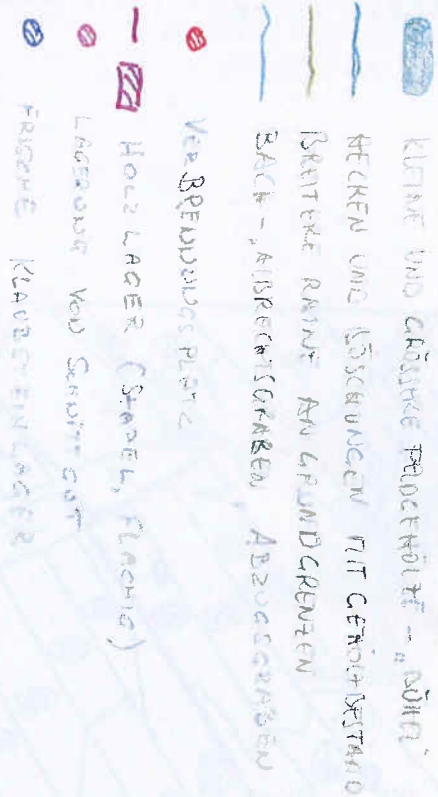 KLEINE UND GRÖSSERE FELDGEHÖLZE - "BÜHEL"
HECKEN UND BÖSCHUNGEN MIT GEHÖLZBESTAND
BREITERE RAINE AN GRUNDGRENZEN
BACH-, ABZUGSGRABEN
VERBRENNUNGSPLATZ
HOLZLAGER (STAPEL, FLÄCHIG)
LAGERUNG VON SCHNITTGUT
FRISCHE KLAUBSTEINLAGER